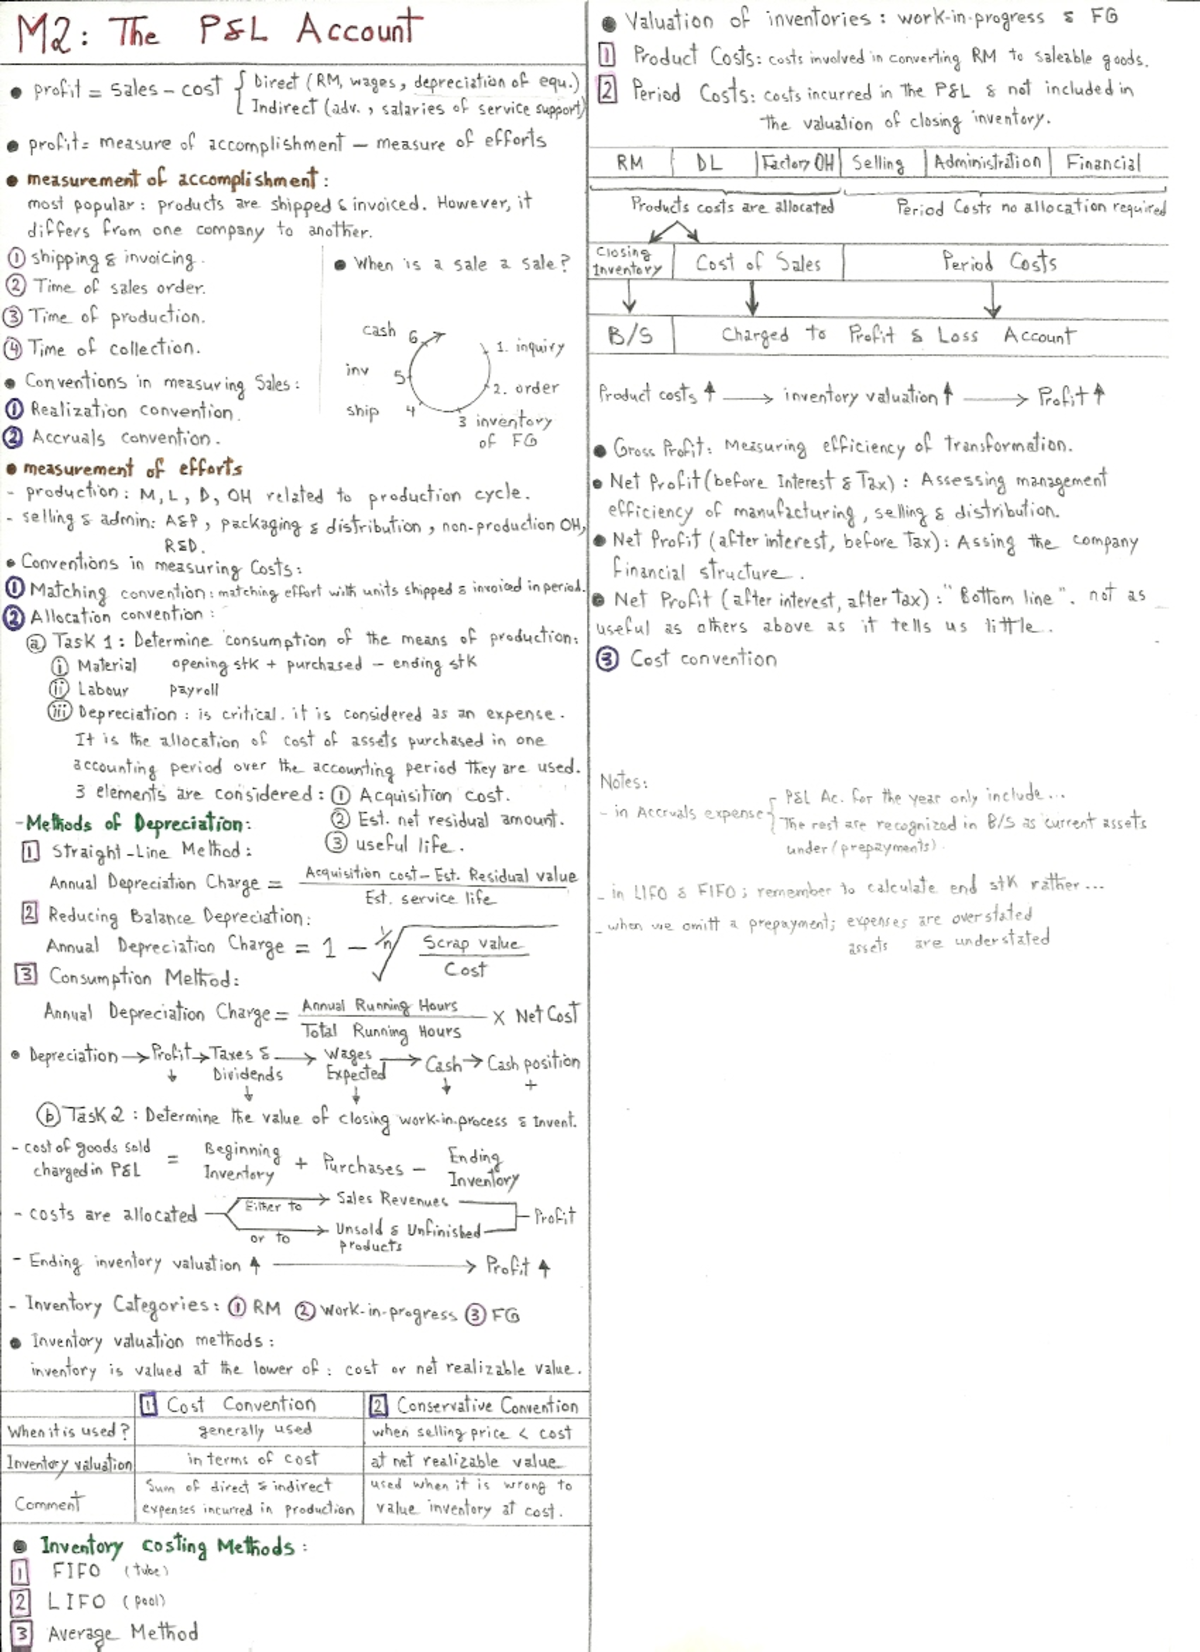 M2: The P&L Account
• profit = sales - cost { Direct (RM, wages, depreciation of equ.)
Indirect (adv., salaries of service support)
• profit = measure of accomplishment - measure of efforts
• measurement of accomplishment:
most popular: products are shipped & invoiced. However, it
differs from one company to another.
① shipping & invoicing.
② Time of sales order.
③ Time of production.
④ Time of collection.
• When is a sale a sale?
cash 6
1. inquiry
inv 5
2. order
ship 4
3 inventory
of FG
• Conventions in measuring Sales:
① Realization convention.
② Accruals convention.
• measurement of efforts
- production: M, L, D, OH related to production cycle.
- selling & admin: A&P, packaging & distribution, non-production OH,
R&D.
• Conventions in measuring Costs:
① Matching convention: matching effort with units shipped & invoiced in period.
② Allocation convention:
ⓐ Task 1: Determine consumption of the means of production:
ⓘ Material opening stk + purchased - ending stk
ⓘⓘ Labour payroll
ⓘⓘⓘ Depreciation: is critical. it is considered as an expense.
It is the allocation of cost of assets purchased in one
accounting period over the accounting period they are used.
3 elements are considered: ① Acquisition cost.
② Est. net residual amount.
③ useful life.
- Methods of Depreciation:
1 Straight-Line Method:
Annual Depreciation Charge = Acquisition cost - Est. Residual value
Est. service life
2 Reducing Balance Depreciation:
Annual Depreciation Charge = 1 - 1/n √ Scrap value
Cost
3 Consumption Method:
Annual Depreciation Charge = Annual Running Hours × Net Cost
Total Running Hours
• Depreciation → Profit → Taxes & → Wages → Cash → Cash position
↓ Dividends Expected ↓ +
↓ ↓
ⓑ Task 2: Determine the value of closing work-in-process & Invent.
- cost of goods sold = Beginning + Purchases - Ending
charged in P&L Inventory Inventory
- costs are allocated Either to → Sales Revenues
Profit
or to → Unsold & Unfinished
products
- Ending inventory valuation ↑ → Profit ↑
- Inventory Categories: ① RM ② Work-in-progress ③ FG
• Inventory valuation methods:
inventory is valued at the lower of: cost or net realizable value.
1 Cost Convention 2 Conservative Convention
When it is used? generally used when selling price < cost
Inventory valuation in terms of cost at net realizable value
Comment Sum of direct & indirect expenses incurred in production used when it is wrong to value inventory at cost.
• Inventory costing Methods:
1 FIFO (tube)
2 LIFO (pool)
3 Average Method
• Valuation of inventories: work-in-progress & FG
1 Product Costs: costs involved in converting RM to saleable goods.
2 Period Costs: costs incurred in the P&L & not included in
the valuation of closing inventory.
RM DL Factory OH Selling Administration Financial
Products costs are allocated Period Costs no allocation required
Closing Inventory Cost of Sales Period Costs
B/S Charged to Profit & Loss Account
Product costs ↑ → inventory valuation ↑ → Profit ↑
• Gross Profit: Measuring efficiency of transformation.
• Net Profit (before Interest & Tax): Assessing management
efficiency of manufacturing, selling & distribution.
• Net Profit (after interest, before Tax): Assing the company
financial structure.
• Net Profit (after interest, after Tax): "Bottom line". not as
useful as others above as it tells us little.
③ Cost convention
Notes:
- in Accruals expense { P&L Ac. for the year only include...
The rest are recognized in B/S as current assets
under (prepayments).
- in LIFO & FIFO; remember to calculate end stk rather...
- when we omitt a prepayment; expenses are overstated
assets are understated